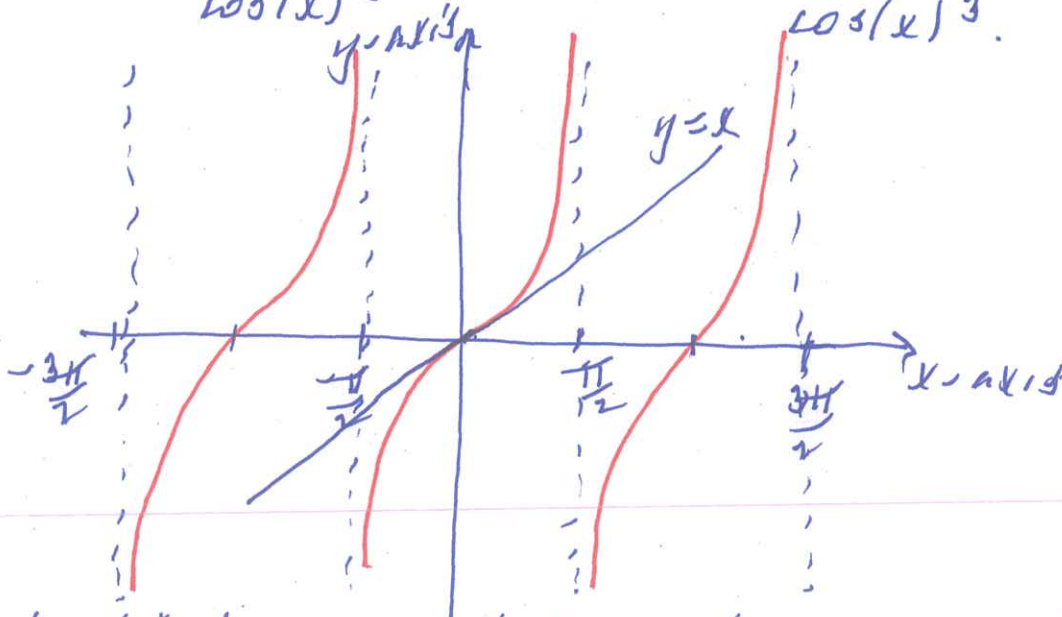 cos(x)
cos(x) 3.
y-axis
y=x
-3π/2
-π/2
π/2
3π/2
x-axis